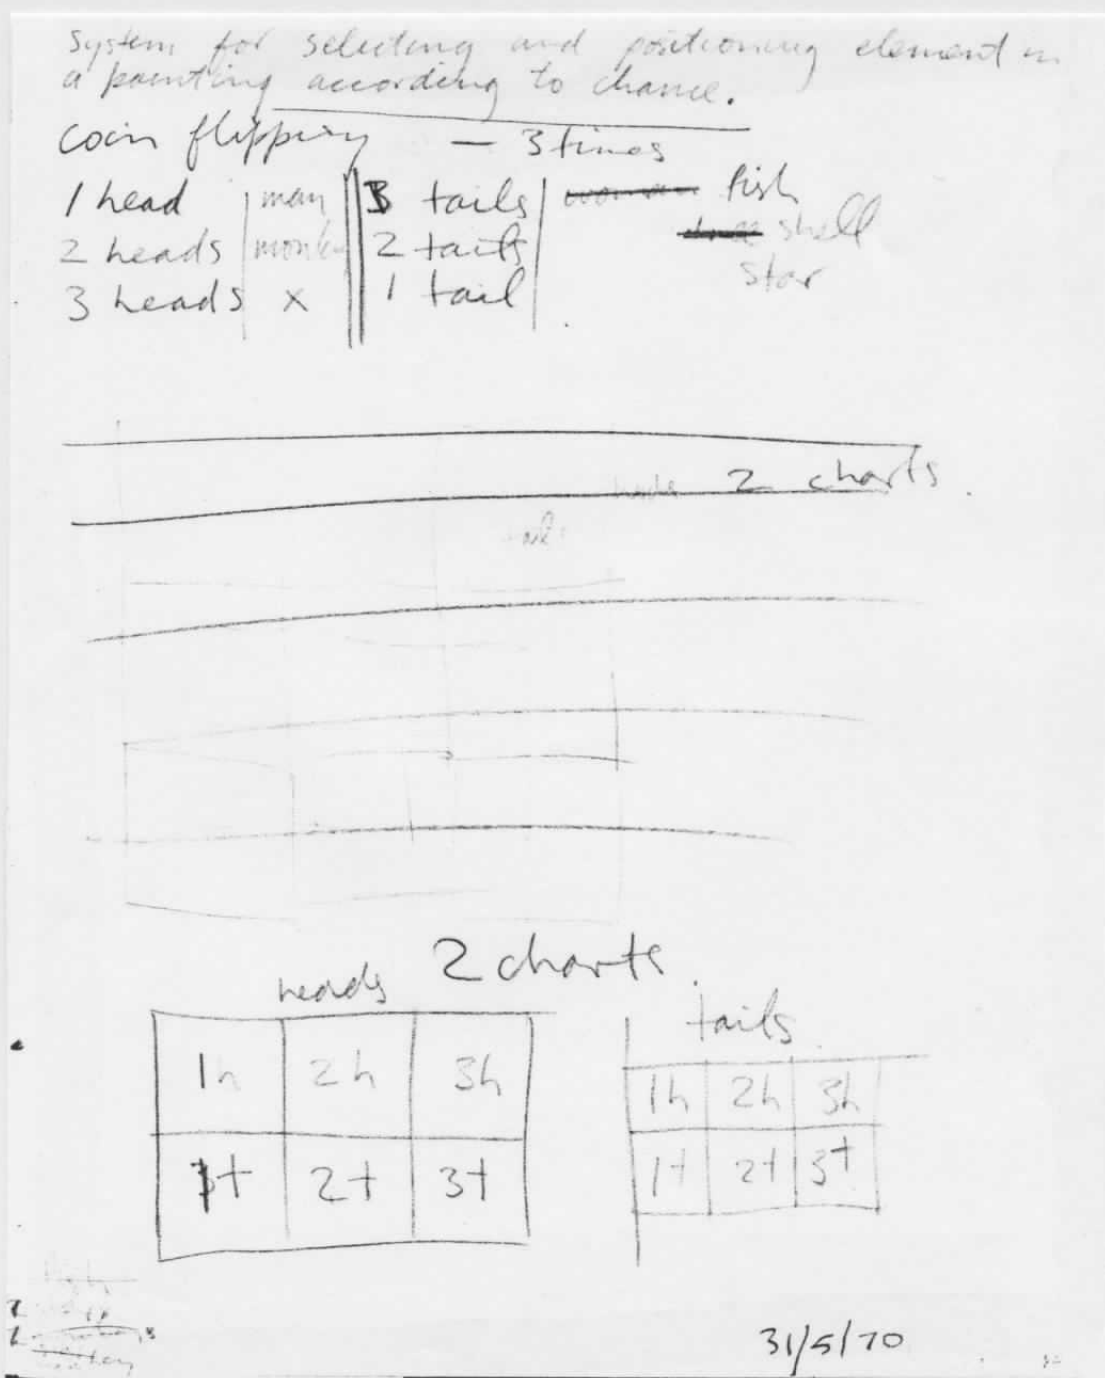 System for selecting and positioning element in
a painting according to chance.
coin flipping — 3 times
1 head man 3 tails woman fish
2 heads monkey 2 tails shell
3 heads x 1 tail star
heads 2 charts.
tails
2 charts.
heads
tails
1h 2h 3h
1t 2t 3t
1h 2h 3h
1t 2t 3t
31/5/70